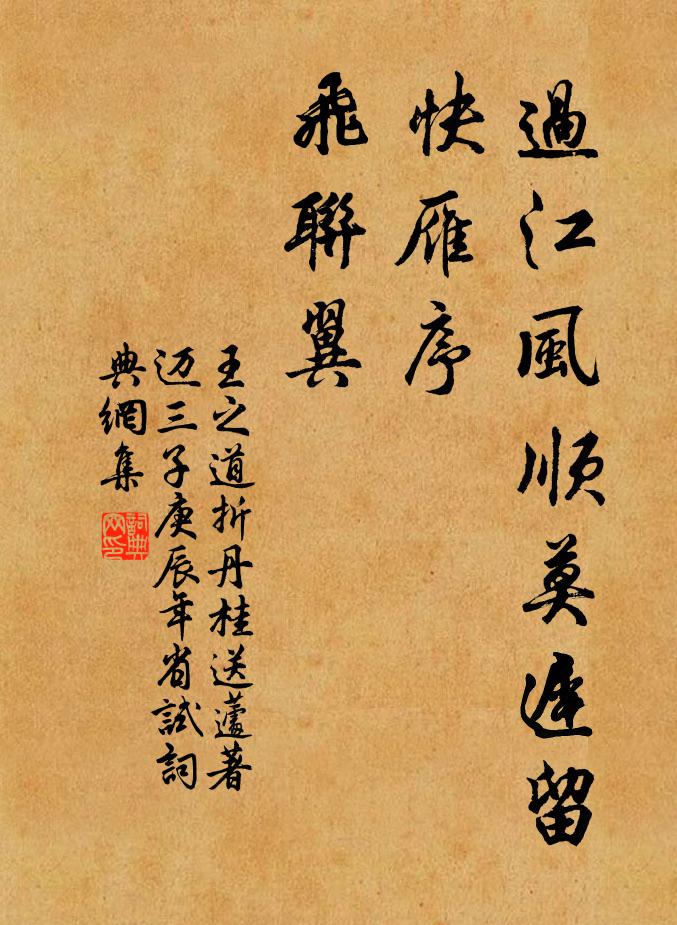 過江風順莫遲留
快雁序
飛聯翼
王之道折丹桂送蘧著
迈三子庚辰年省試詞
典網集
詞典网印